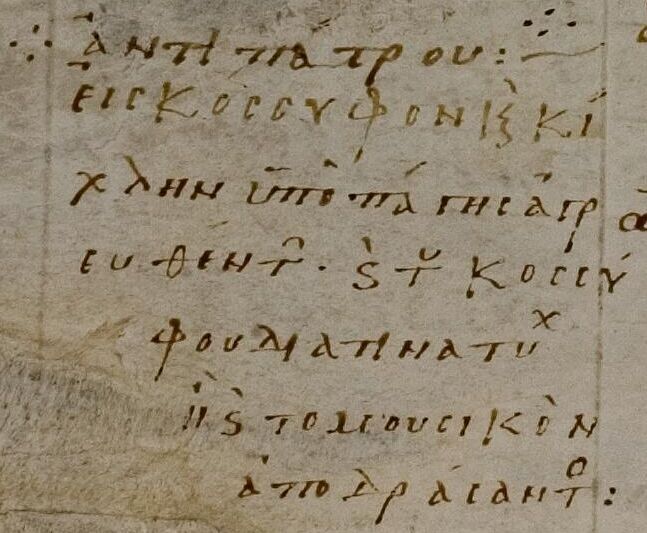 ἀντιπάτρου :~
εις κοσσυφον κ̀ κί
χλην ὑπὸ πάγης ἀγρ
ευθέντ̑ · ϛ̀ τ̆ κοσσύ
φου διατινα τυχ
ἢ ϛ̀ το μουσικὸν
ἀποδράσαντο :